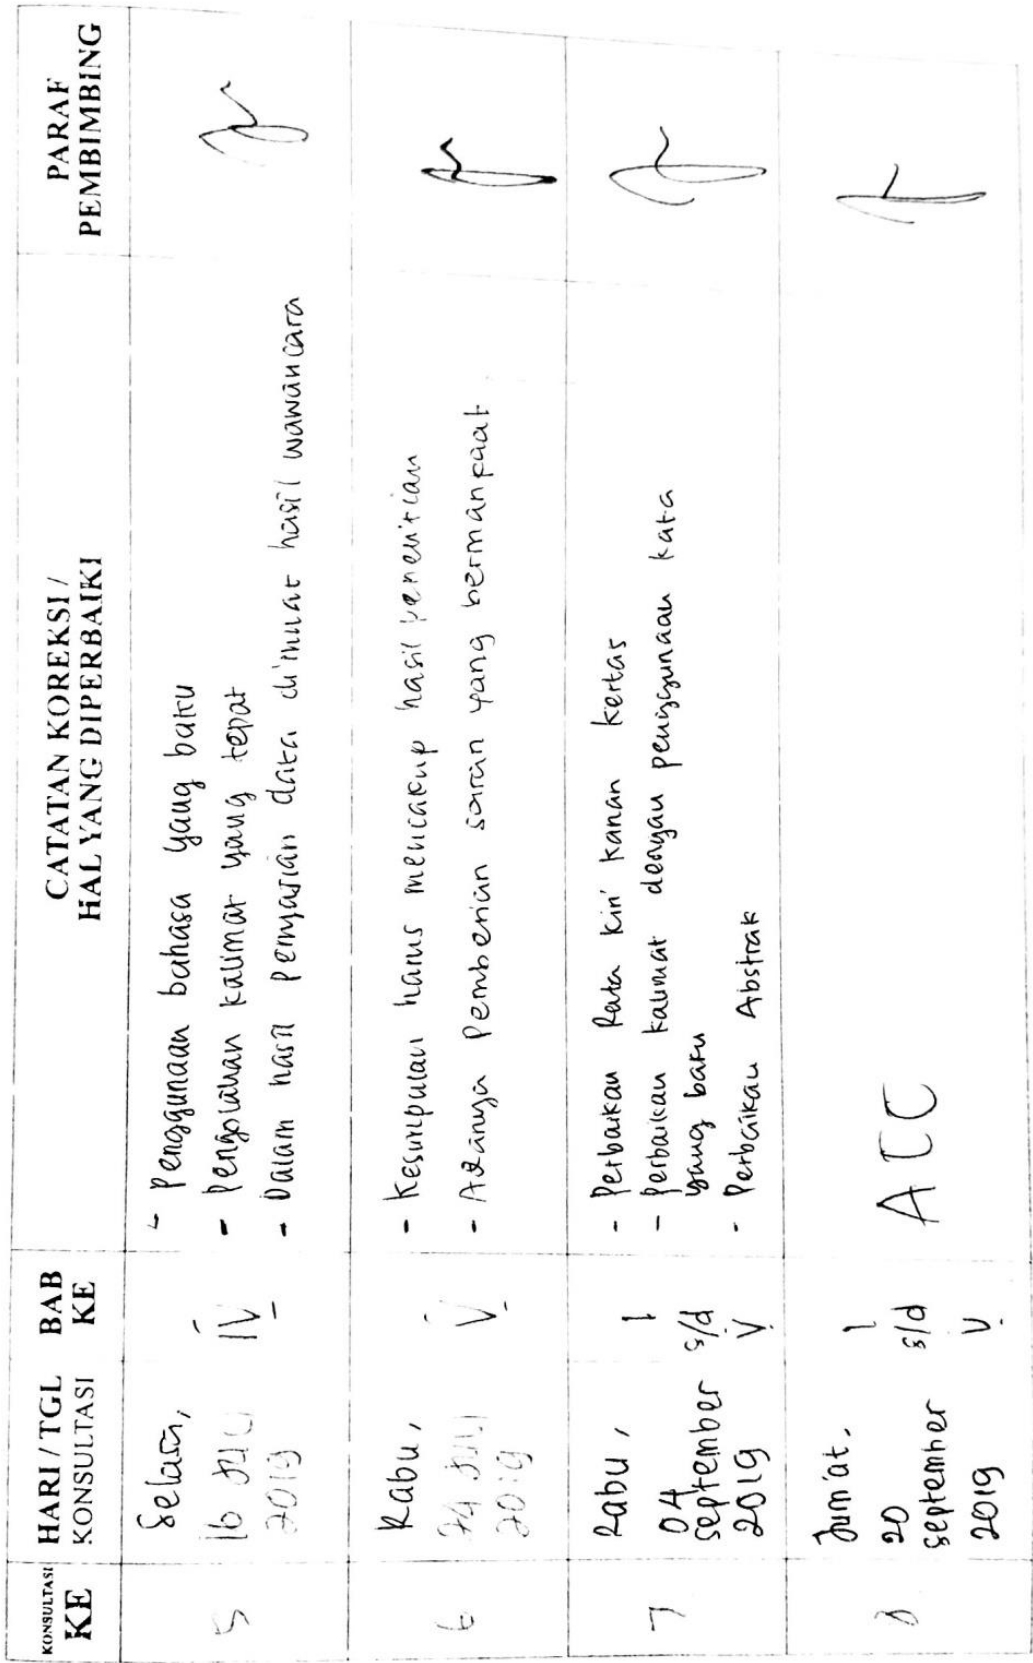 KONSULTASI KE
HARI / TGL KONSULTASI
BAB KE
CATATAN KOREKSI /
HAL YANG DIPERBAIKI
PARAF
PEMBIMBING
5
Selasa,
16 Juli
2019
IV
- Penggunaan bahasa yang baku
- Pengolahan kalimat yang tepat
- Dalam hasil penyajian data dimuat hasil wawancara
6
Rabu,
24 Juli
2019
V
- Kesimpulan harus mencakup hasil penelitian
- Adanya Pemberian saran yang bermanfaat
7
Rabu,
04
September
2019
I
s/d
V
- Perbaikan Rata kiri kanan kertas
- Perbaikan kalimat dengan penggunaan kata
yang baku
- Perbaikan Abstrak
8
Jum'at.
20
September
2019
I
s/d
V
ACC